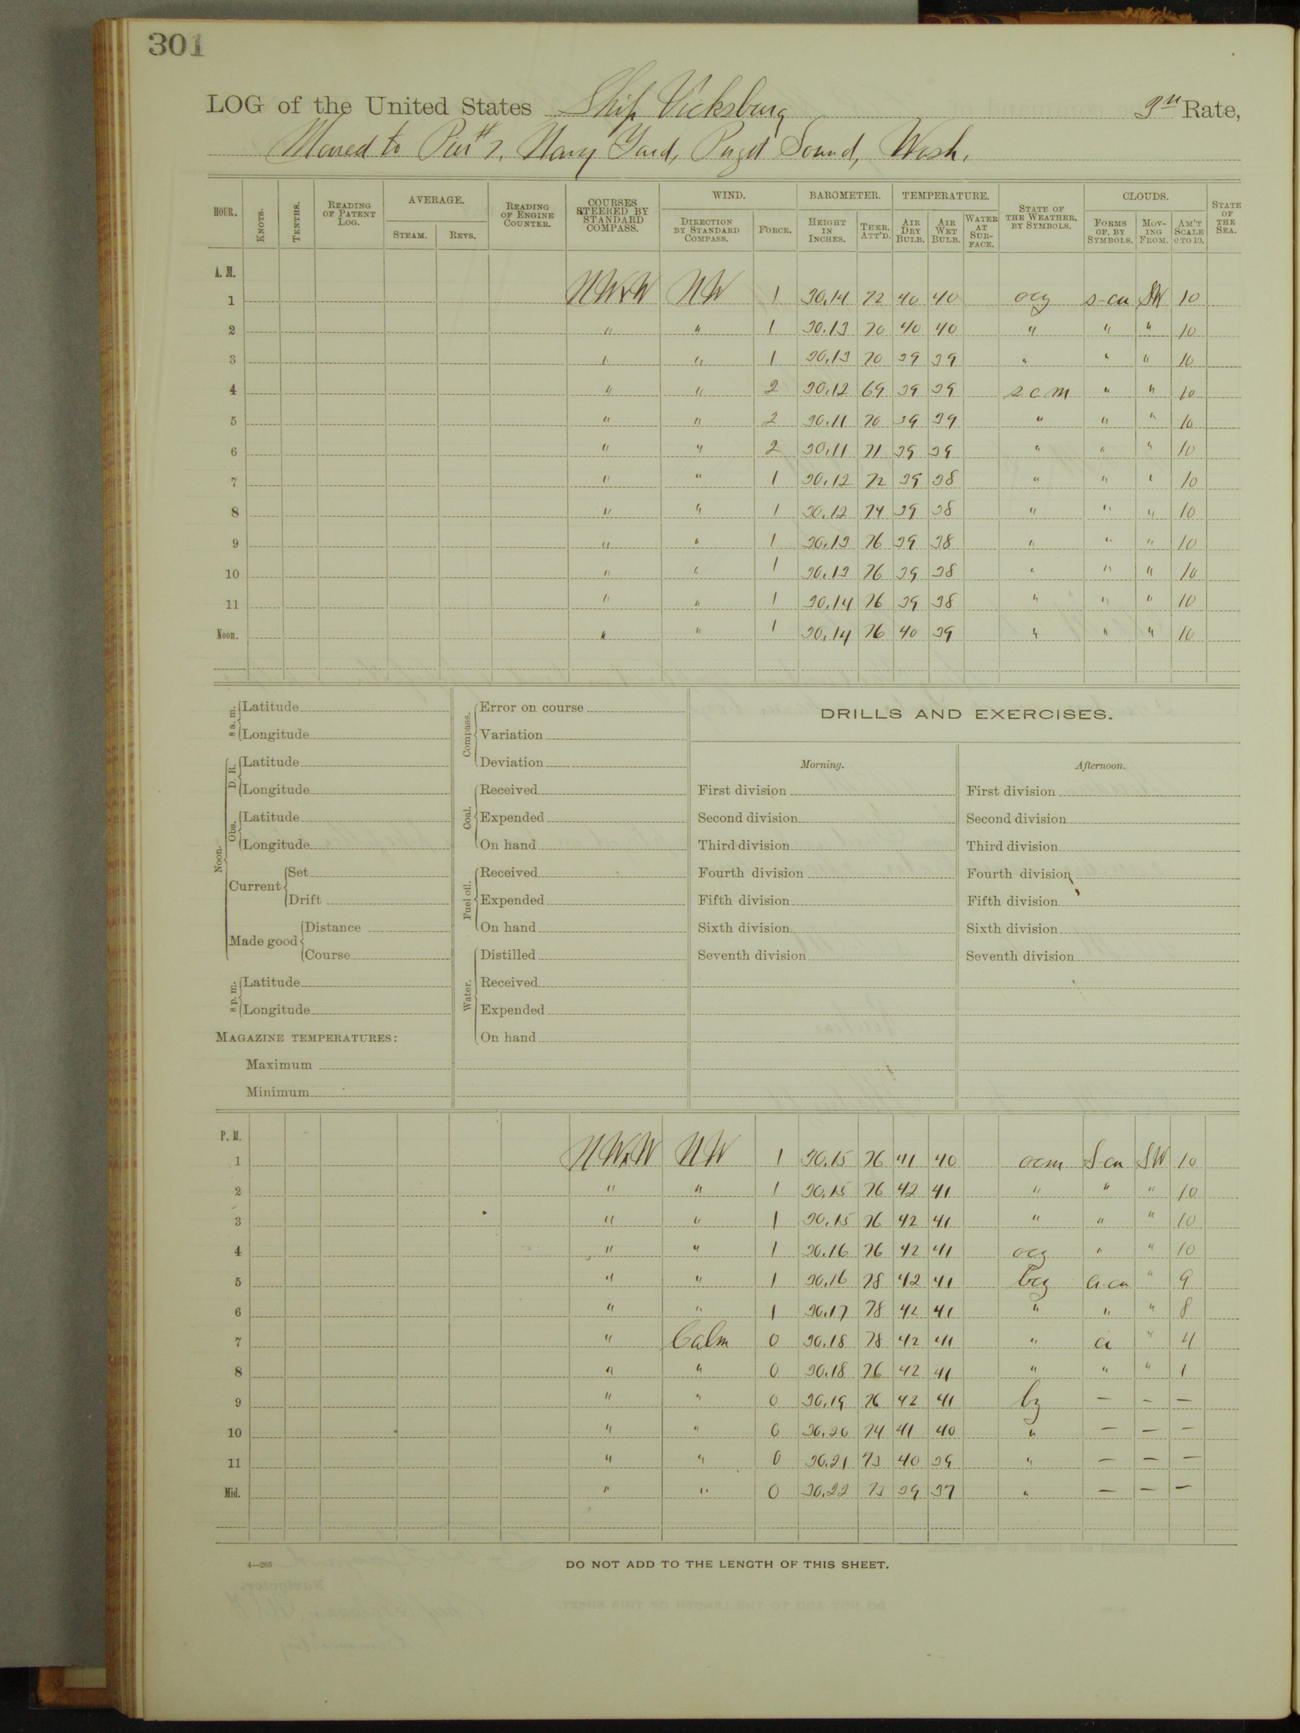 301
LOG of the United States Ship Vicksburg 3rd Rate,
Moored to Pier #7, Navy Yard, Puget Sound, Wash.
HOUR. KNOTS. TENTHS. READING OF PATENT LOG. AVERAGE. STEAM. REVS. READING OF ENGINE COUNTER. COURSES STEERED BY STANDARD COMPASS. WIND. DIRECTION BY STANDARD COMPASS. FORCE. BAROMETER. HEIGHT IN INCHES. THER. ATT'D. TEMPERATURE. AIR DRY BULB. AIR WET BULB. WATER AT SURFACE. STATE OF THE WEATHER, BY SYMBOLS. CLOUDS. FORMS OF, BY SYMBOLS. MOVING FROM. AM'T SCALE 0 TO 10. STATE OF THE SEA.
A. M.
1 NWxW NW 1 30.14 72 40 40 ocg s-cu SW 10
2 " " 1 30.13 70 40 40 " " " 10
3 " " 1 30.13 70 39 39 " " " 10
4 " " 2 30.12 69 39 39 o c m " " 10
5 " " 2 30.11 70 39 39 " " " 10
6 " " 2 30.11 71 39 39 " " " 10
7 " " 1 30.12 72 39 38 " " " 10
8 " " 1 30.12 74 39 38 " " " 10
9 " " 1 30.13 76 39 38 " " " 10
10 " " 1 30.13 76 39 38 " " " 10
11 " " 1 30.14 76 39 38 " " " 10
Noon. " " 1 30.14 76 40 39 " " " 10
8 a. m. Latitude
Longitude
Noon. D. R. Latitude
Longitude
Obs. Latitude
Longitude
Current Set
Drift
Made good Distance
Course
8 p. m. Latitude
Longitude
MAGAZINE TEMPERATURES:
Maximum
Minimum
Compass. Error on course
Variation
Deviation
Coal. Received
Expended
On hand
Fuel oil. Received
Expended
On hand
Water. Distilled
Received
Expended
On hand
DRILLS AND EXERCISES.
Morning.
First division
Second division
Third division
Fourth division
Fifth division
Sixth division
Seventh division
Afternoon.
First division
Second division
Third division
Fourth division
Fifth division
Sixth division
Seventh division
P. M.
1 NWxW NW 1 30.15 76 41 40 ocm S-cu SW 10
2 " " 1 30.15 76 42 41 " " " 10
3 " " 1 30.15 76 42 41 " " " 10
4 " " 1 30.16 76 42 41 ocg " " 10
5 " " 1 30.16 78 42 41 bcg a-cu " 9
6 " " 1 30.17 78 42 41 " " " 8
7 " Calm 0 30.18 78 42 41 " " 4
8 " " 0 30.18 76 42 41 " " " 1
9 " " 0 30.19 76 42 41 — — —
10 " " 0 30.20 74 41 40 " — — —
11 " " 0 30.21 73 40 39 " — — —
Mid. " " 0 30.22 73 39 37 " — — —
4—265
DO NOT ADD TO THE LENGTH OF THIS SHEET.